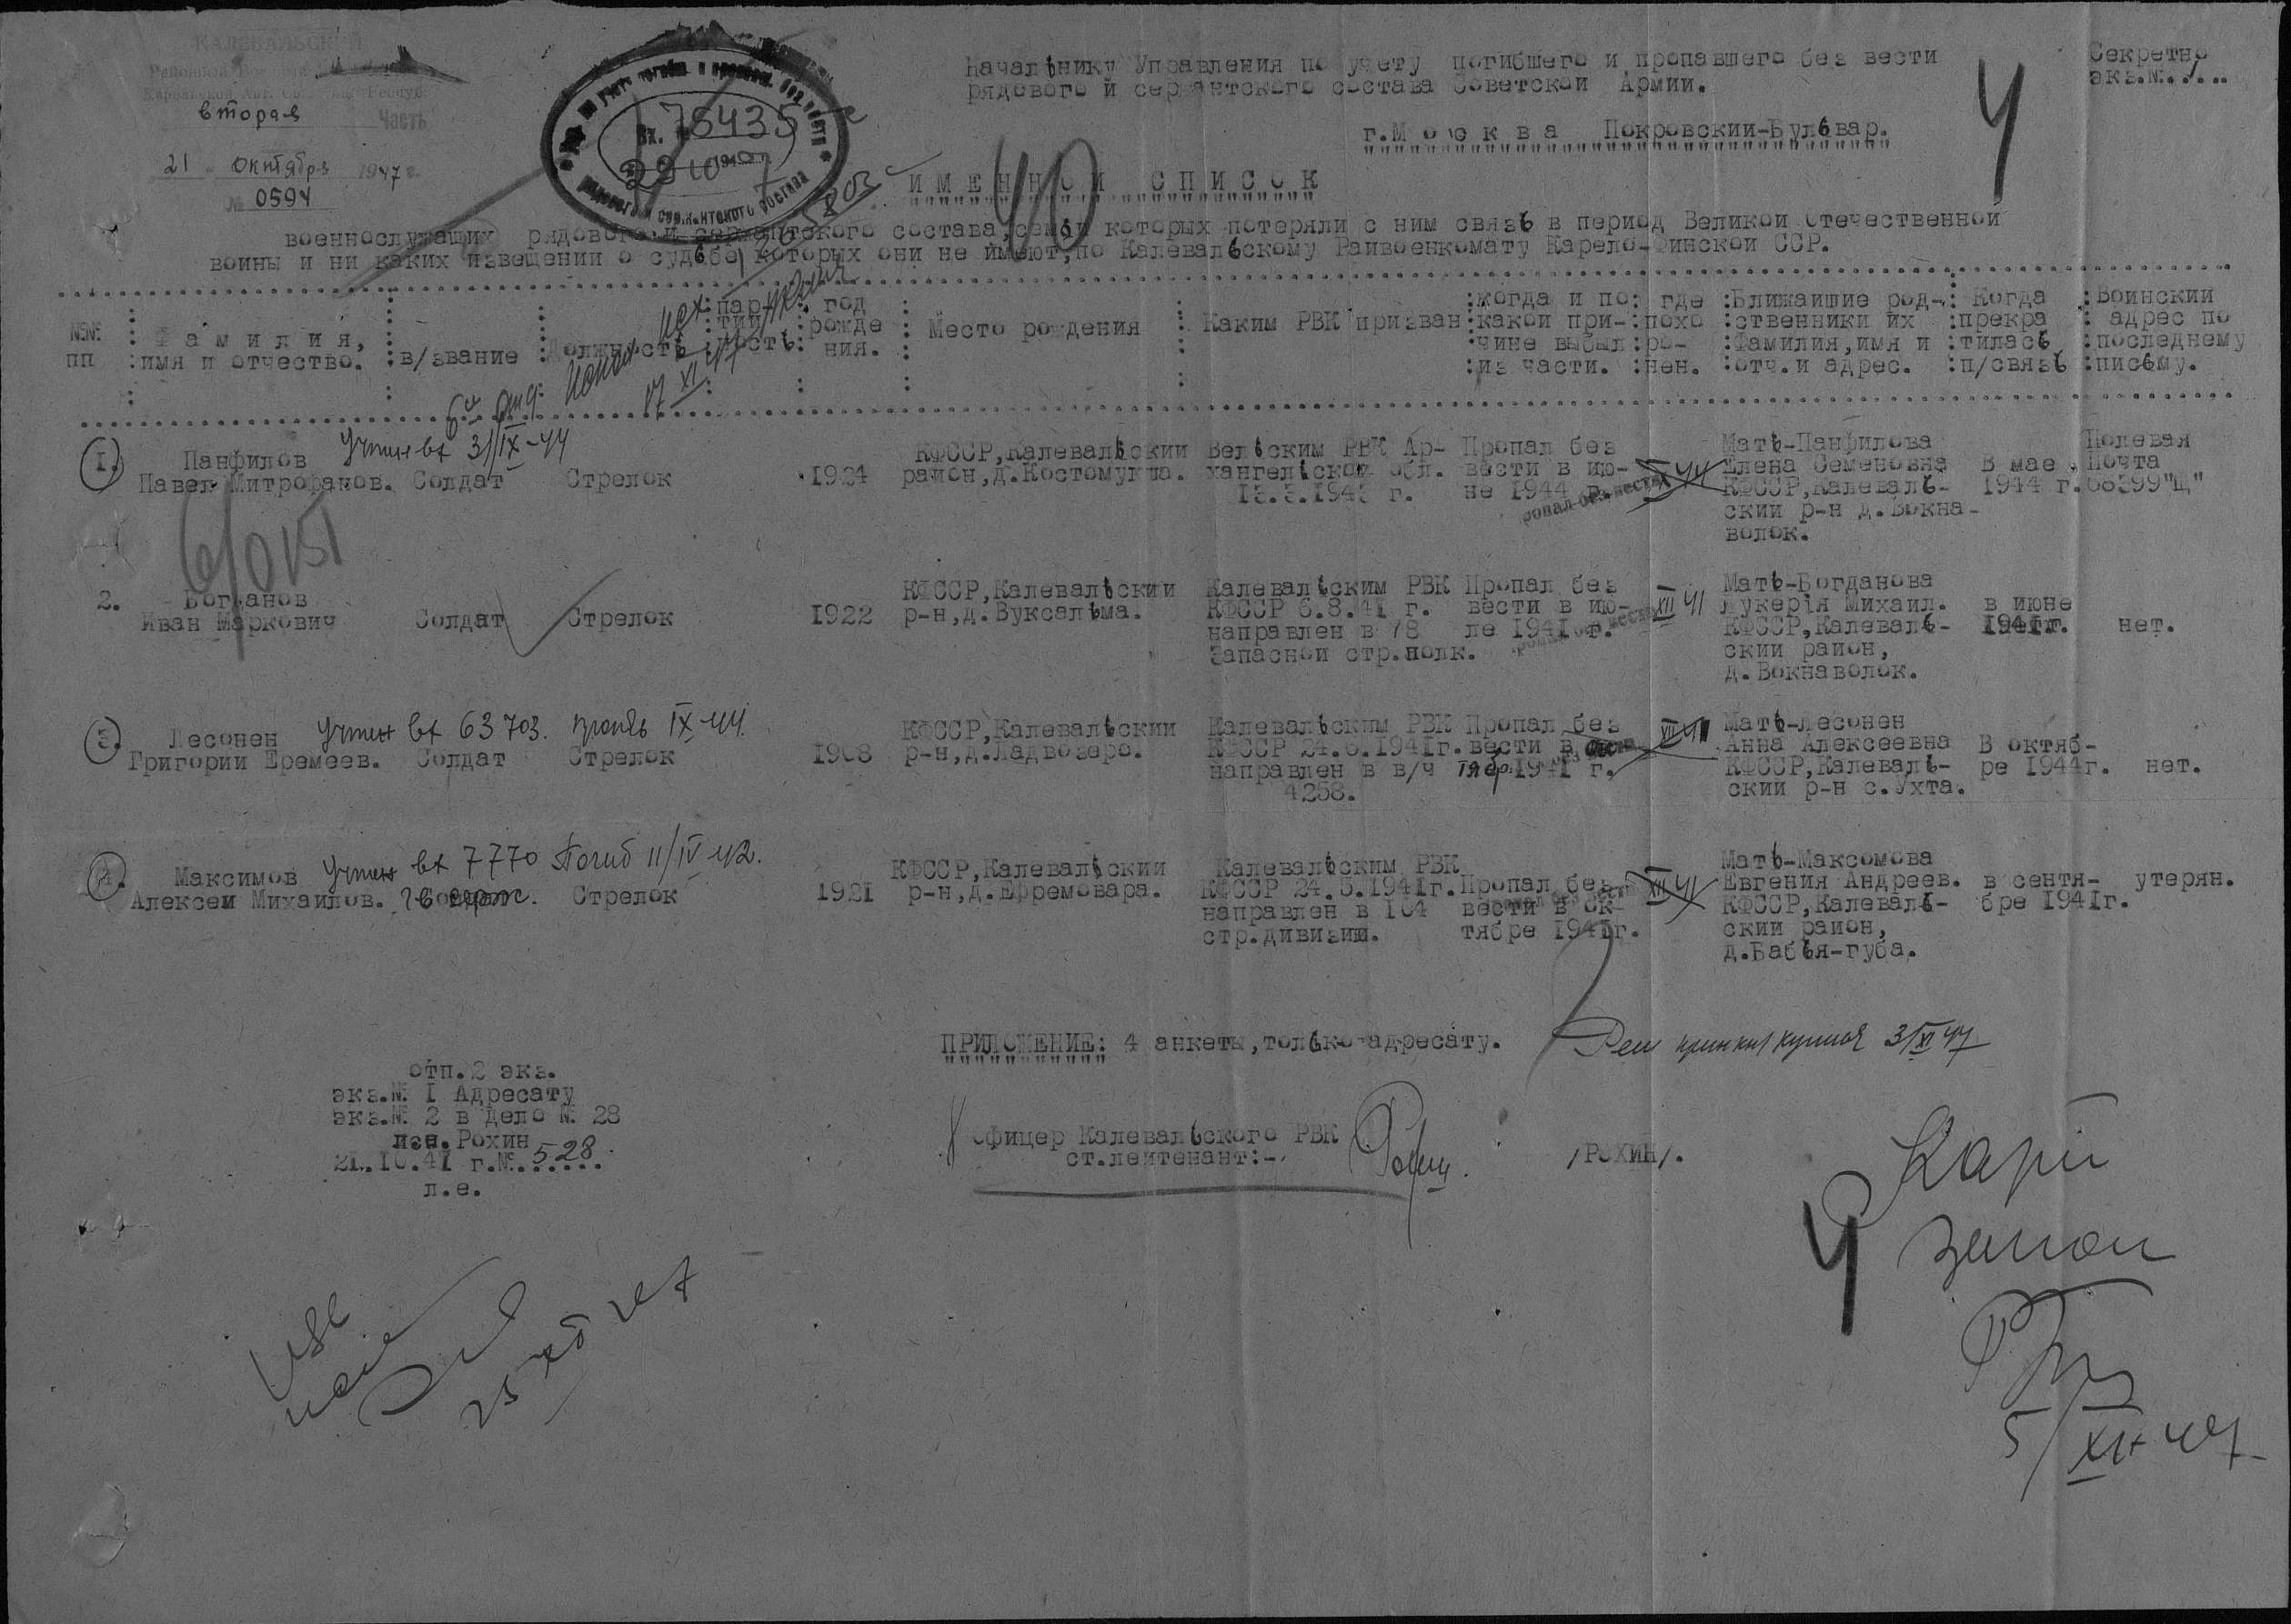 КАЛЕВАЛЬСКИЙ
Районный Военный
вторая часть
21 октября 1947 г.
№ 0594
Вх. 75435
29 10 1947
Секретно
экз.№.1...
Начальнику Управления по учету погибшего и пропавшего без вести
рядового и сержантского состава Советской Армии.
г.М о с к в а Покровский-Бульвар.
4
40
И М Е Н Н О Й С П И С О К
военнослужащих рядового и сержантского состава, семьи которых потеряли с ним связь в период Великой Отечественной
войны и ни каких извещений о судьбе которых они не имеют, по Калевальскому Райвоенкомату Карело-Финской ССР.
№№ пп
Ф а м и л и я, имя и отчество.
в/звание
Должность
пар-тий ность
год рожде ния.
Место рождения
Каким РВК призван
когда и по какой при-чине выбыл из части.
где похо ро-нен.
Ближайшие род-ственники их Фамилия,имя и отч.и адрес.
Когда прекра тилась п/связь
Воинский адрес по последнему письму.
17 XI 47
1. Панфилов учтен вх 31/IX-44 КФССР,Калевальский Вельским РВК Ар- Пропал без Мать-Панфилова Полевая
Павел Митрофанов. Солдат Стрелок 1924 район,д.Костомукша. хангельской обл. вести в ию- Елена Семеновна В мае Почта
не 1944 г. КФССР,Каleваль- 1944 г. 68399"Щ"
ский р-н д.Вокна-
волок.
2. Богданов КФССР,Калевальский Калевальским РВК Пропал без XII 41 Мать-Богданова
Иван Маркович Солдат Стрелок 1922 р-н,д.Вуксальма. КФССР 6.8.41 г. вести в ию- Лукерія Михаил. в июне
направлен в 78 ле 1941 г. КФССР,Калеваль- 1941г. нет.
Запасной стр.полк. ский район,
д.Вокнаволок.
3. Лесонен учтен вх 63703. IX-44. КФССР,Калевальский Калевальским РВК Пропал без Мать-Лесонен
Григорий Еремеев. Солдат Стрелок 1908 р-н,д.Ладвозеро. КФССР 24.6.1941г. вести в Анна Алексеевна В октяб-
направлен в в/ч 1941 г. КФССР,Калеваль- ре 1944г. нет.
4258. ский р-н с.Ухта.
4. Максимов учтен вх 7770 Погиб 11/IV-42. КФССР,Калевальский Калевальским РВК Мать-Максомова
Алексей Михаилов. Стрелок 1921 р-н,д.Ефремовара. КФССР 24.5.1941г. Пропал без XII 41 Евгения Андреев. в сентя- утерян.
направлен в 104 вести в ок- КФССР,Калеваль- бре 1941г.
стр.дивизию. тябре 1941г. ский район,
д.Бабья-губа.
ПРИЛОЖЕНИЕ: 4 анкеты,только адресату.
3/XI 47
отп.2 экз.
экз.№ 1 Адресату
экз.№ 2 в Дело № 28
исп.Рохин
21.10.47 г.№.528.
л.е.
Офицер Калевальского РВК
ст.лейтенант:-
/РОХИН/.
4
5/XI-47